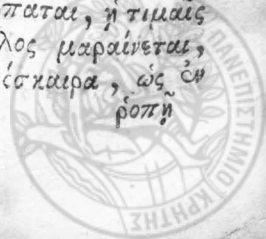 παται, ἢ τιμαῖς
λος μαραίνεται,
έσκαιρα, ὡς ἐν
ῥοπῇ
ΠΑΝΕΠΙΣΤΗΜΙΟ ΚΡΗΤΗΣ